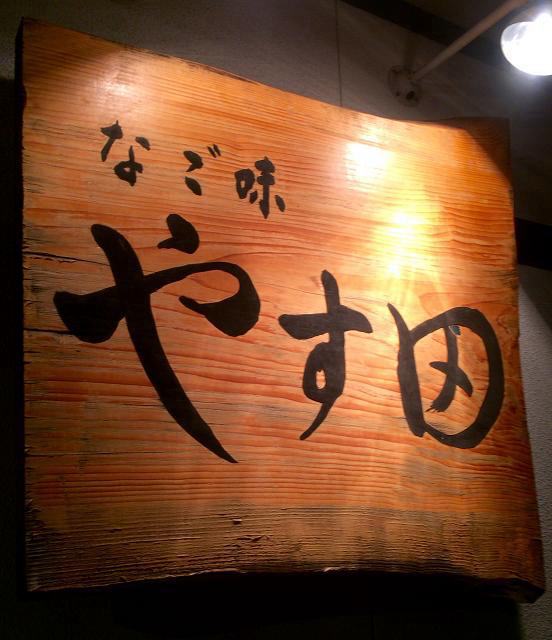 なご味
やす田